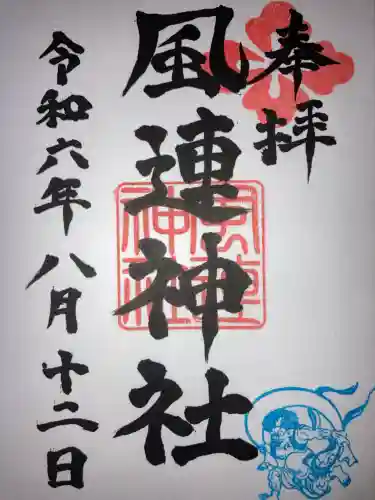 奉拝
風連神社
令和六年八月十二日
風連
神社